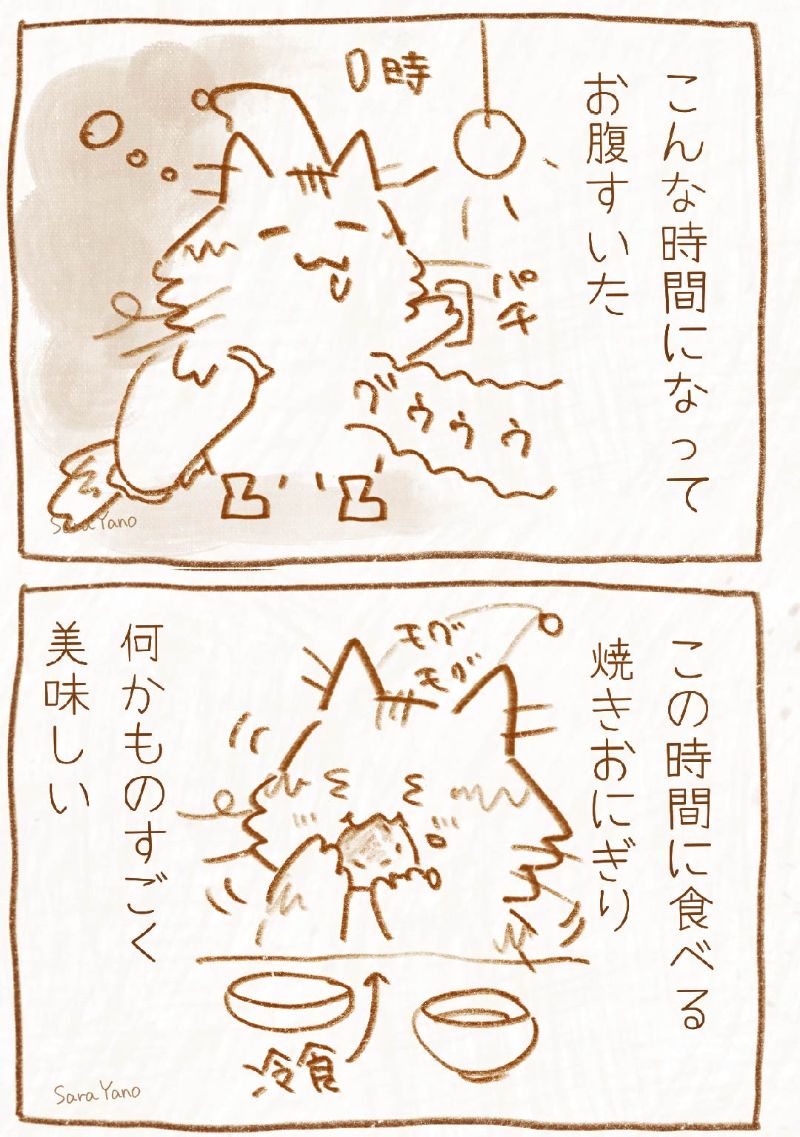 こんな時間になって
お腹すいた
0時
パチ
グゥゥゥ
Sara Yano
この時間に食べる
焼きおにぎり
モグ
モグ
何かものすごく
美味しい
冷食
Sara Yano